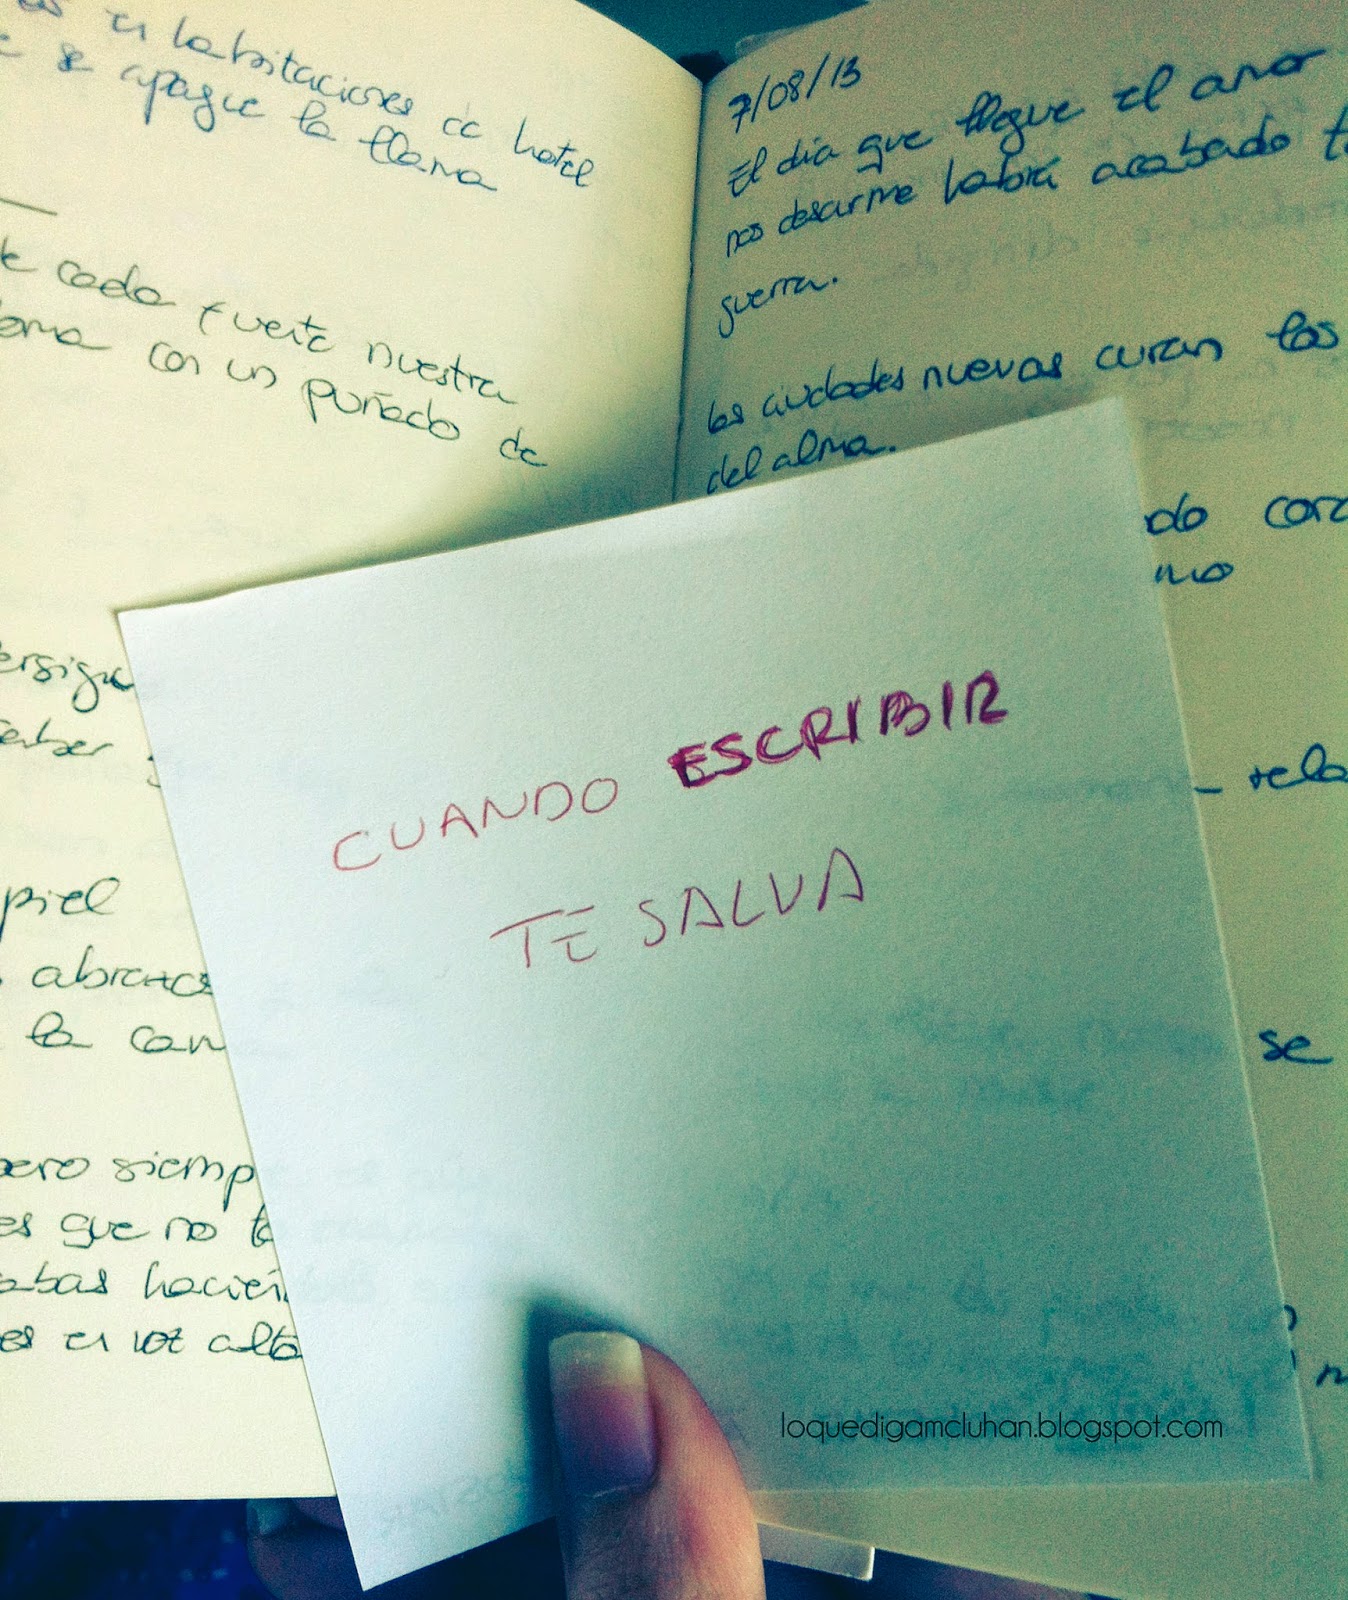 en habitaciones de hotel
se apague la llama
cada fuerte nuestra
con un puñado de
piel
abrazos
la
pero siemp
es que no te
abas hacien
es en voz alta
7/08/13
El día que llegue el amor
nos desarme habrá acabado
guerra.
las ciudades nuevas curan las
del alma.
do
mo
se
CUANDO ESCRIBIR
TE SALVA
loquedigamcluhan.blogspot.com